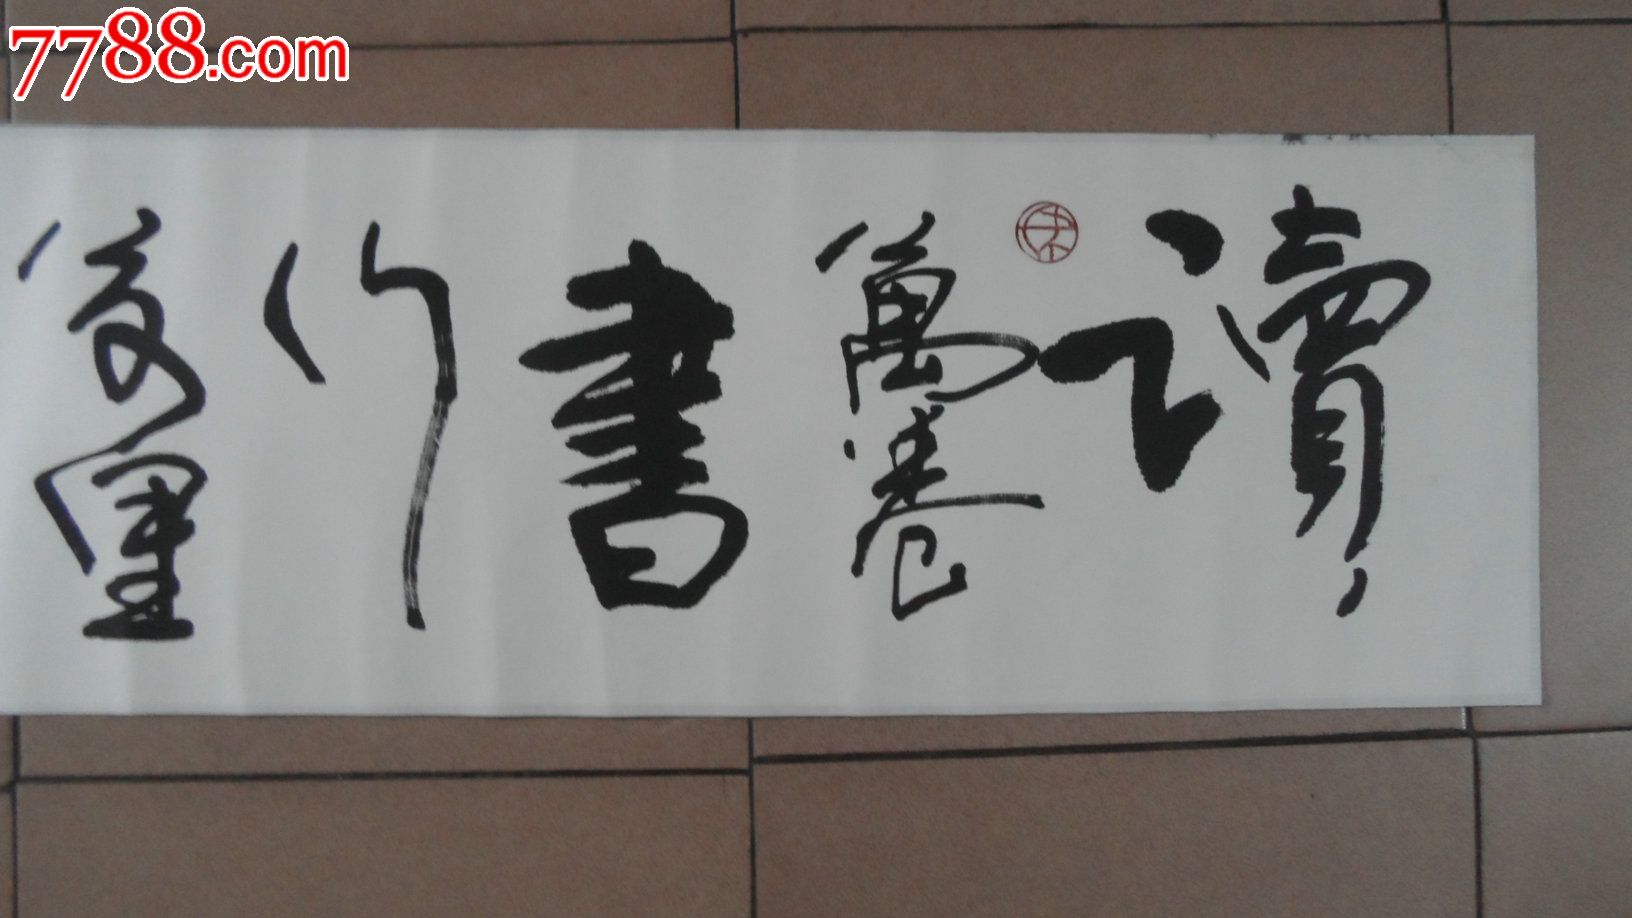 7788.com
讀
萬卷
書
行
萬里